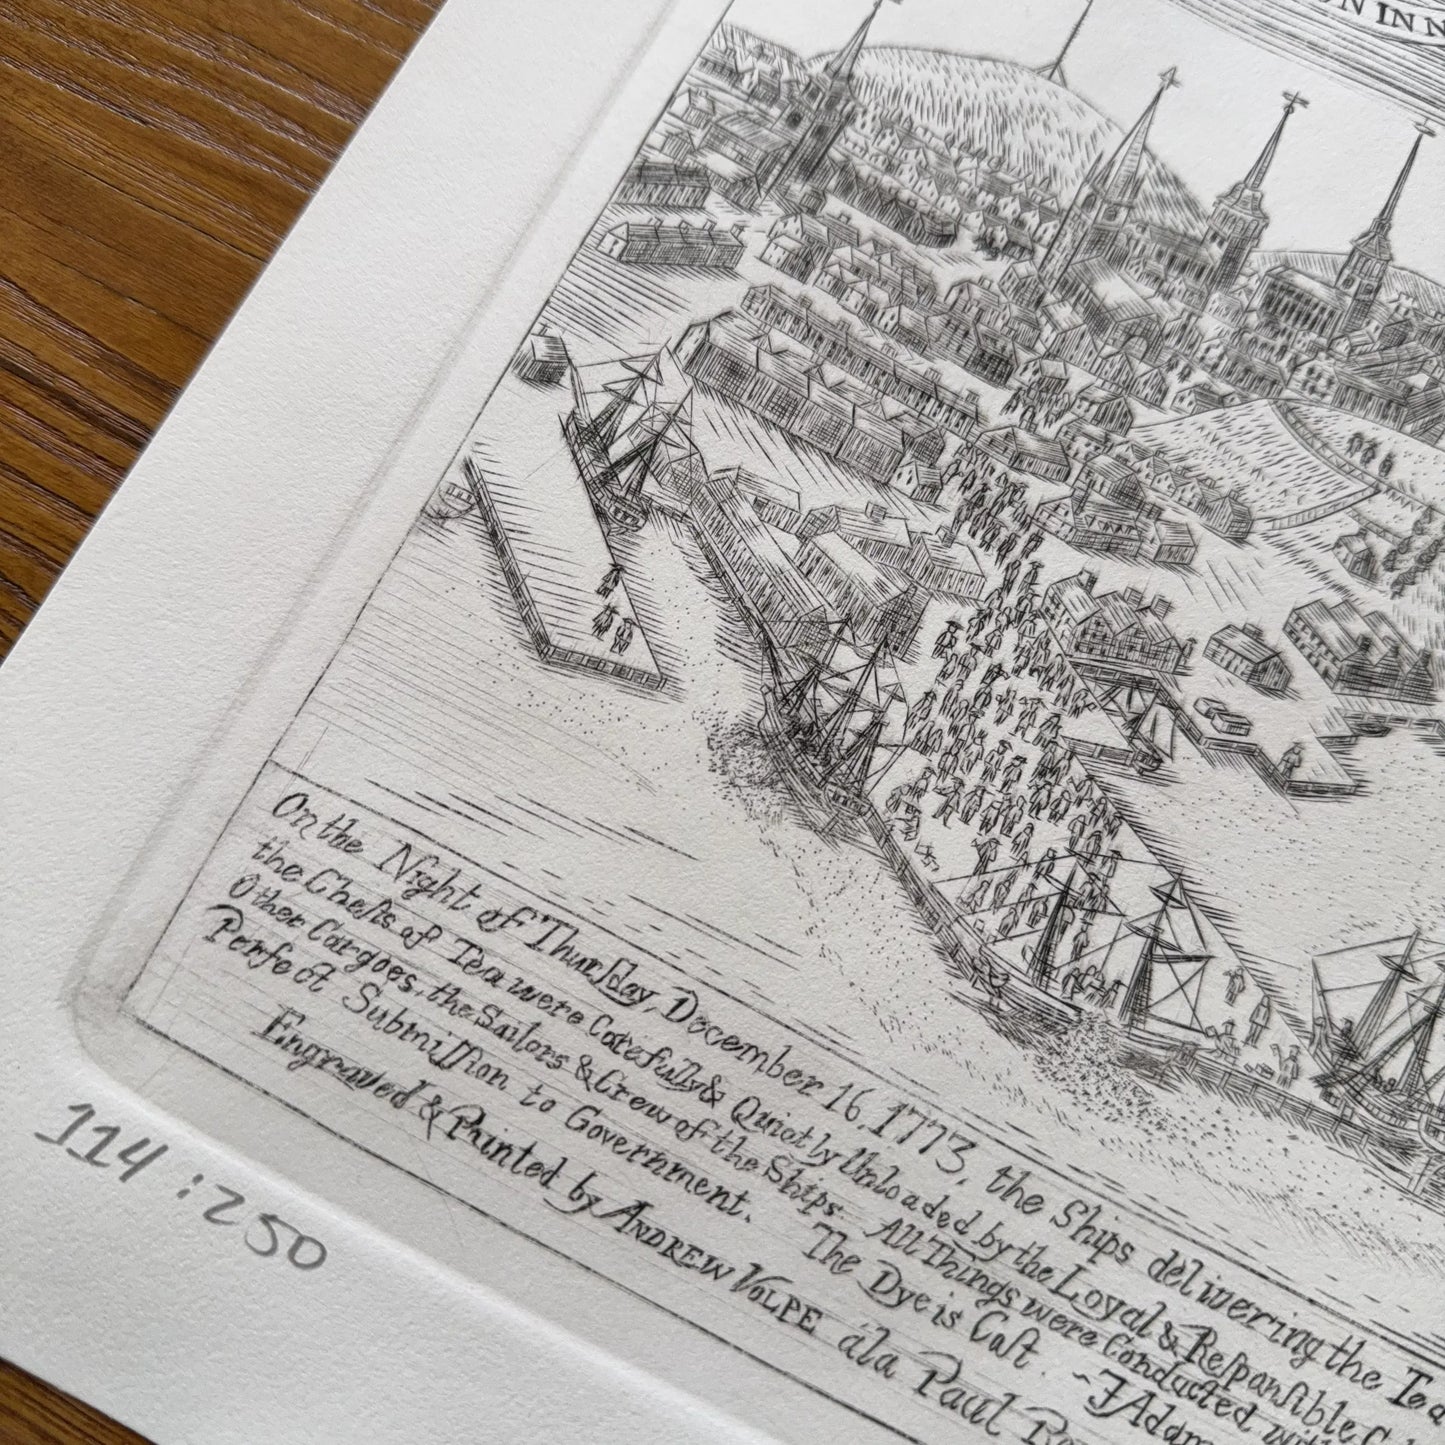 ON IN N
On the Night of Thurſday, December 16, 1773, the Ships delivering the Tea
the Cheſts of Tea were Carefully & Quietly Unloaded by the Loyal & Reſponſible
Other Cargoes, the Sailors & Crew of the Ships. All Things were Conducted with
Perfect Submiſſion to Government. The Dye is Caſt. ~ J Adam
Engraved & Printed by ANDREW VOLPE ála Paul
114 : 250